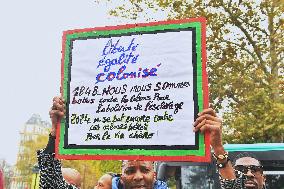 Liberté
égalité
colonisé
1848. NOUS NOUS SOMMES
battus contre les békés pour
l'abolition de l'esclavage
2024 on se bat encore contre
les mêmes békés
Pour la vie chère